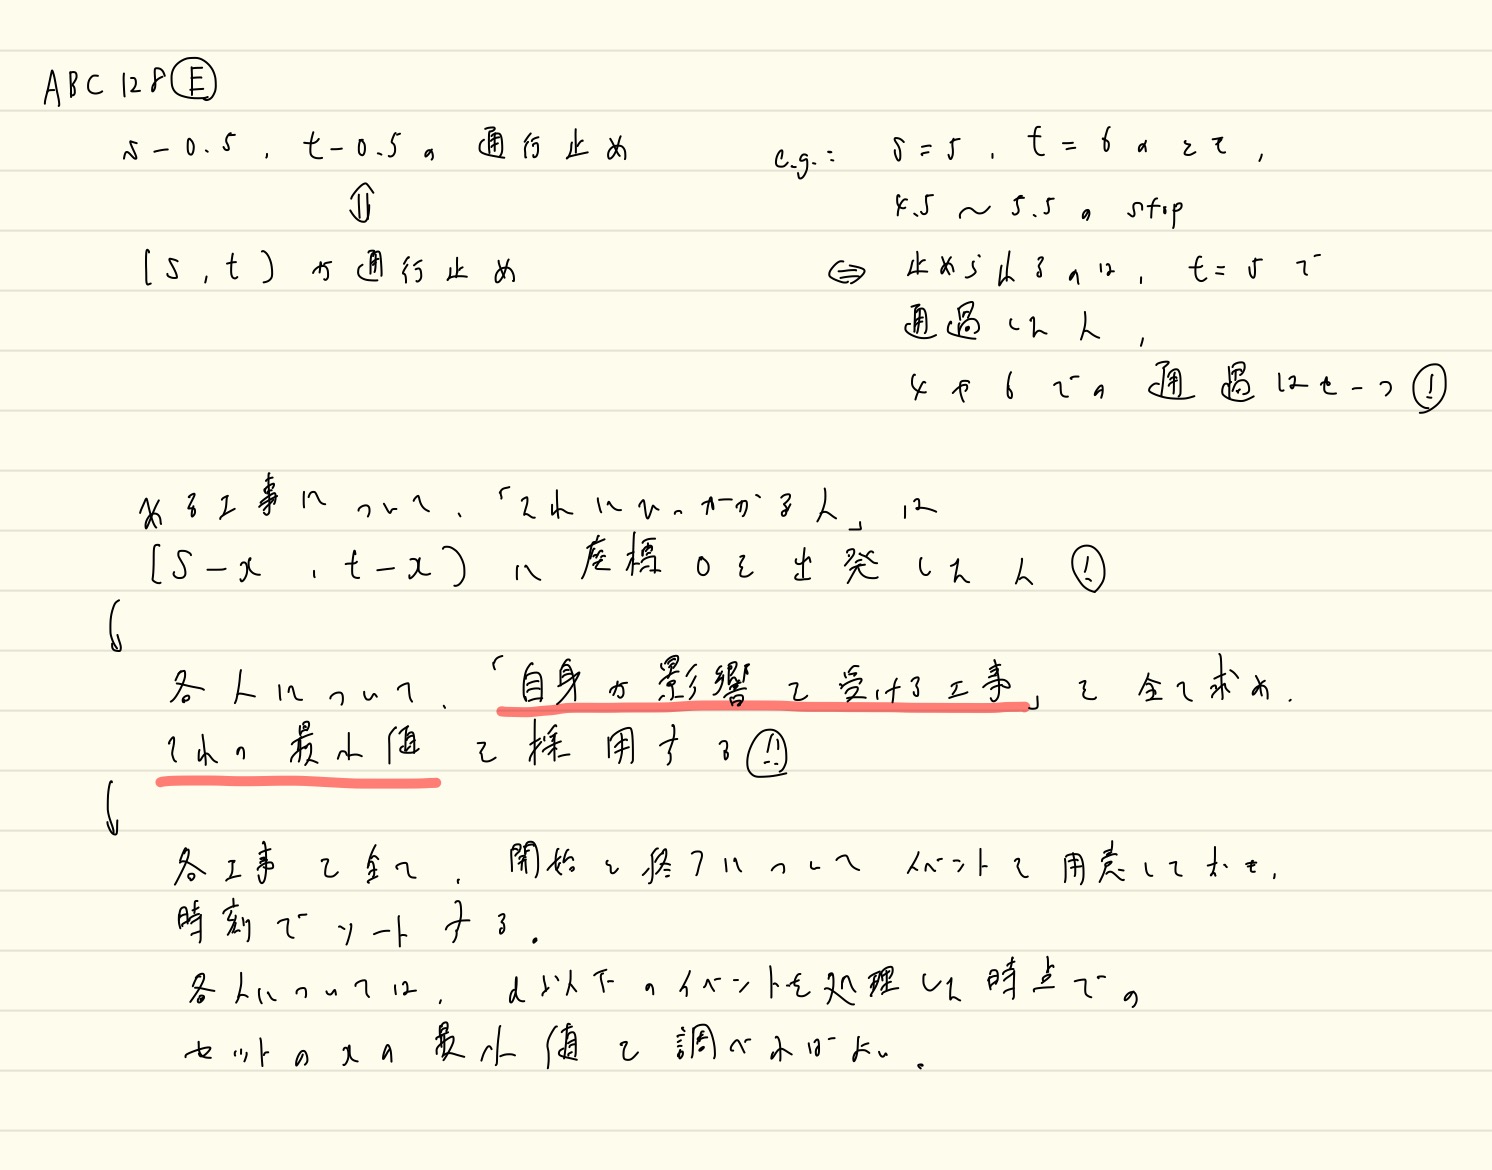 ABC128 Ⓔ
s-0.5, t-0.5の通行止め
⇕
[s, t)が通行止め
e.g.: s=5, t=6のとき,
4.5〜5.5のstop
⇔ 止められるのは, t=5で
通過した人,
4や6での通過はセーフ!
ある工事について,「それにひっかかる人」は
[s-x, t-x)に座標0を出発した人!
各人について,「自身が影響を受ける工事」を全て求め,
それの最小値を採用する!!
各工事を全て, 開始と終了についてイベントを用意しておき,
時刻でソートする.
各人については, d以下のイベントを処理した時点での
セットのxの最小値を調べればよい.